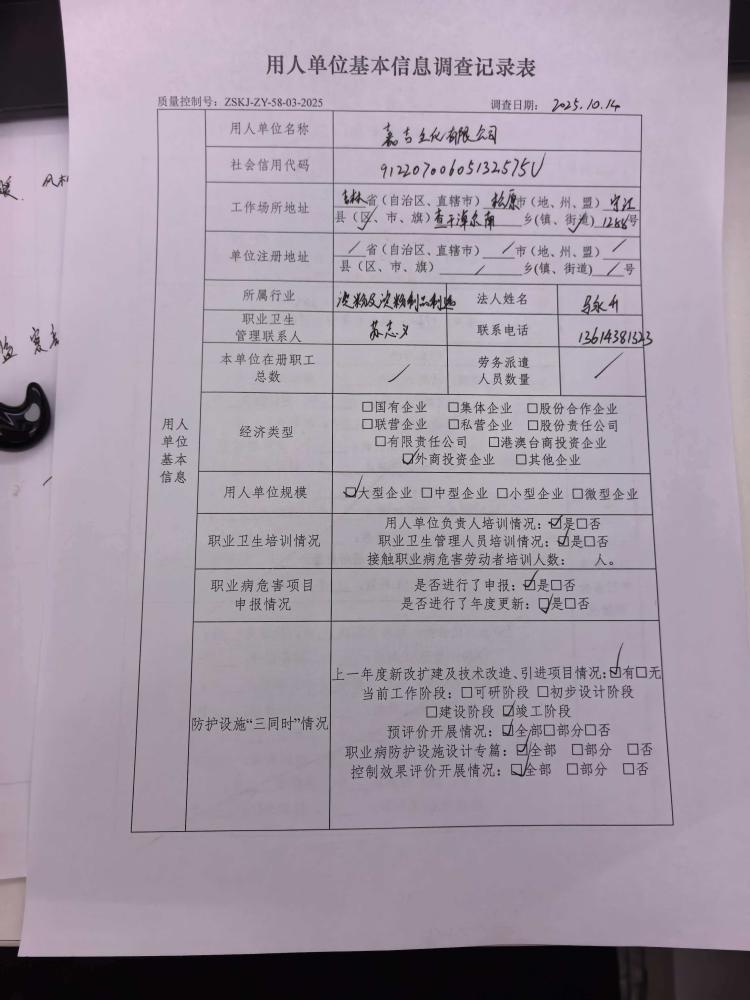 用人单位基本信息调查记录表
质量控制号：ZSKJ-ZY-58-03-2025 调查日期：2025.10.14
用人单位基本信息
用人单位名称 嘉吉生化有限公司
社会信用代码 91220700605132575U
工作场所地址 吉林省（自治区、直辖市）松原市（地、州、盟）宁江
县（区、市、旗）查干淖东南 乡(镇、街道) 1288号
单位注册地址 /省（自治区、直辖市）/市（地、州、盟）/
县（区、市、旗）/乡(镇、街道)/号
所属行业 淀粉及淀粉制品制造 法人姓名
职业卫生管理联系人 苏志义 联系电话 13614381523
本单位在册职工总数 / 劳务派遣人员数量 /
经济类型 □国有企业 □集体企业 □股份合作企业
□联营企业 □私营企业 □股份责任公司
□有限责任公司 □港澳台商投资企业
☑外商投资企业 □其他企业
用人单位规模 ☑大型企业 □中型企业 □小型企业 □微型企业
职业卫生培训情况 用人单位负责人培训情况：☑是□否
职业卫生管理人员培训情况：☑是□否
接触职业病危害劳动者培训人数： 人。
职业病危害项目申报情况 是否进行了申报：☑是□否
是否进行了年度更新：☑是□否
防护设施“三同时”情况 上一年度新改扩建及技术改造、引进项目情况：☑有□无
当前工作阶段：□可研阶段 □初步设计阶段
□建设阶段 ☑竣工阶段
预评价开展情况：☑全部□部分□否
职业病防护设施设计专篇：☑全部 □部分 □否
控制效果评价开展情况：☑全部 □部分 □否